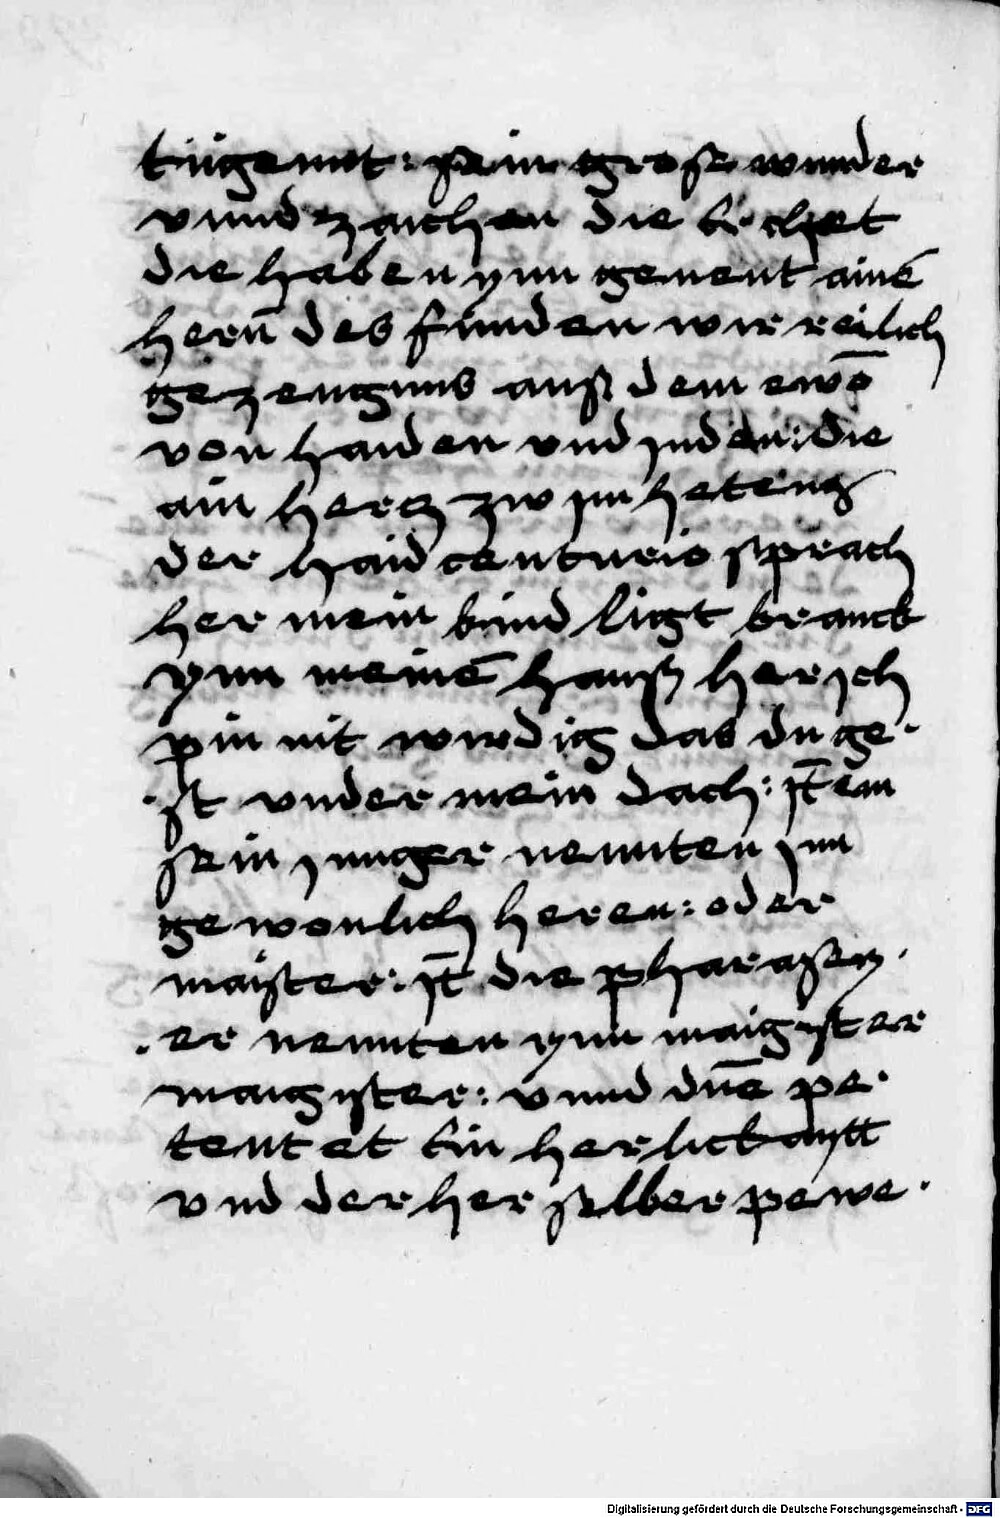 tugennt: sein grose wunder
vnnd zaichen die er thet
die haben ynn genent ainē
hern̄ des finden wir reilich
gezengnus auß dem ewō
von haiden vnd juden: die
ain hercz zw jm heten
der haid centurio sprach
her mein kind ligt kranck
ynn meinē hauß her jch
pin nit wirdig das du ge·
·st vnder mein dach: jt̄em
sein junger nennten jnn
gewonlich heren: oder
maister: jt̄ die pharasey·
·er nennten ynn maigister
maigister: vnnd dūe pe·
tentet ein herlickaytt
vnd der her selber pewe·
Digitalisierung gefördert durch die Deutsche Forschungsgemeinschaft - DFG